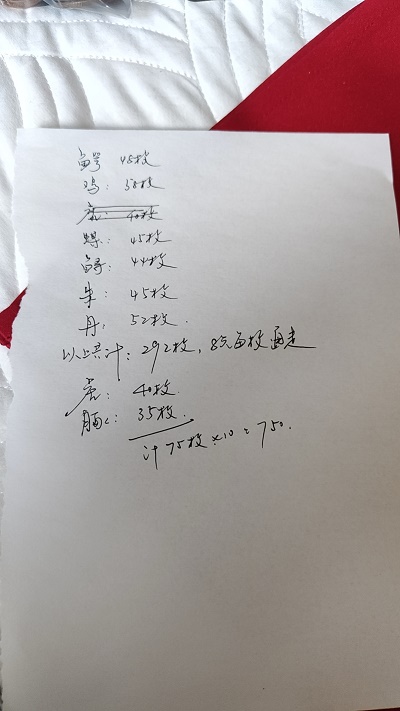 鳄 48枚
鸡: 58枚
虎: 40枚
蝶: 45枚
44枚
朱: 45枚
丹: 52枚.
以上共计: 292枚, 8元每枚通走
虎: 40枚.
35枚.
计75枚×10=750.